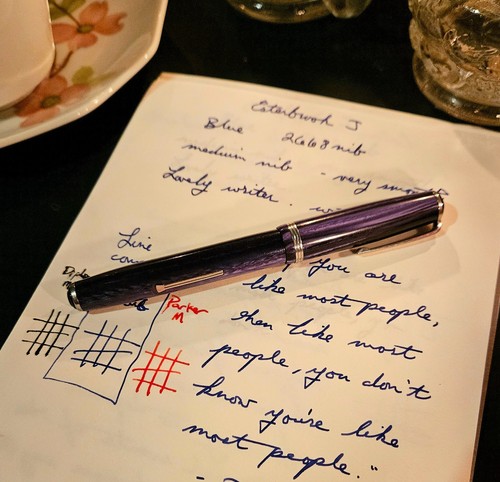 Esterbrook J
Blue 2668 nib
medium nib - very
Lovely writer.
Line
Parker
M
you are
like most people,
then like most
people, you don't
know you're like
most people."
-